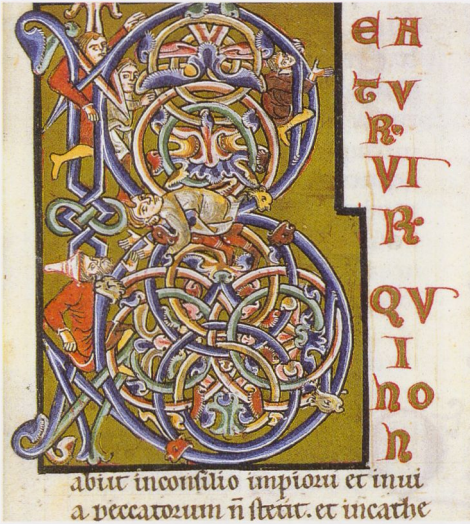 B
EA
TV
R
VI
R
QV
I
NO
N
abiit inconsilio impioru et inui
a peccatorum n̄ stetit. et incathe